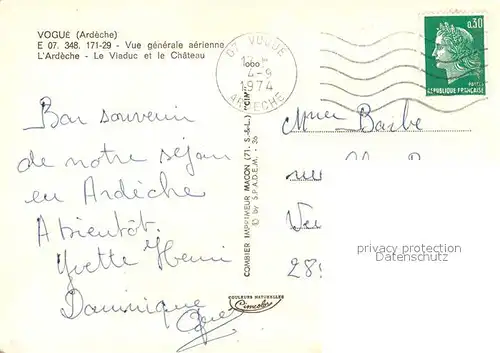 VOGUE (Ardèche)
E 07. 348. 171-29 - Vue générale aérienne
L'Ardèche - Le Viaduc et le Château
07 VOGUE
4-9
1974
ARDECHE
0,30
REPUBLIQUE FRANÇAISE
COMBIER IMPRIMEUR MACON (71. S.-&-L.) "CIM"
© by S.P.A.D.E.M. - 36
Bon souvenir
de notre séjour
en Ardèche
A bientôt.
Yvette Henri
Dominique
COULEURS NATURELLES
Cimcolor
Barbe
28
privacy protection
Datenschutz